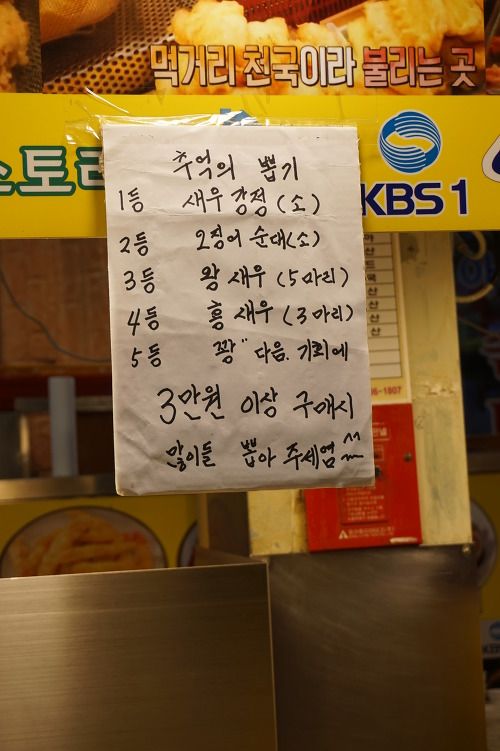 먹거리 천국이라 불리는 곳
스토리
KBS 1
추억의 뽑기
1등 새우 강정 (소)
2등 오징어 순대(소)
3등 왕 새우 (5마리)
4등 홍 새우 (3마리)
5등 꽝" 다음. 기회에
3만원 이상 구매시
많이들 뽑아 주세염